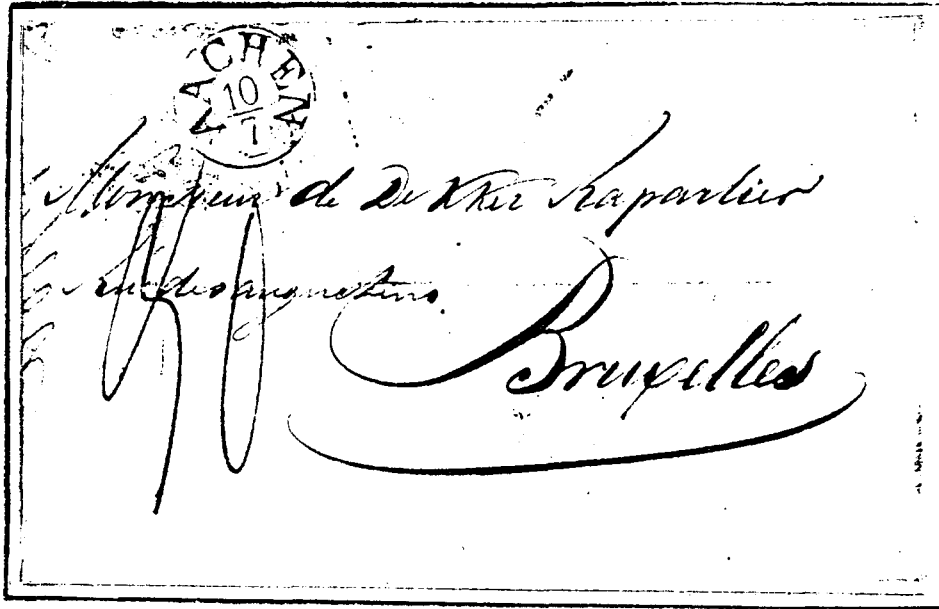 AACHEN
10
7
Monsieur de Dekker
rue des augustins
Bruxelles